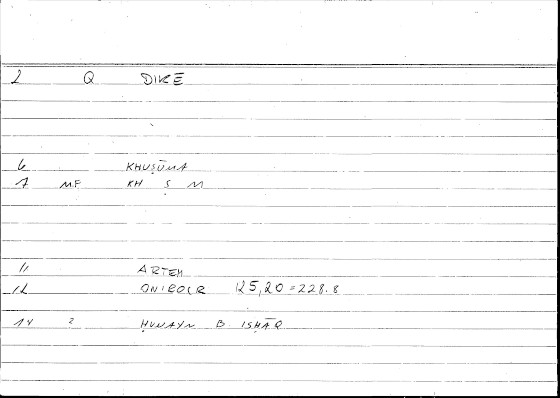 2 Q DIKE
6 KHUṢŪMA
7 MF KH Ṣ M
11 ARTEM
12 ONIROCR 125,20 = 228.8
14 2 ḤUNAYN B. ISḤĀQ